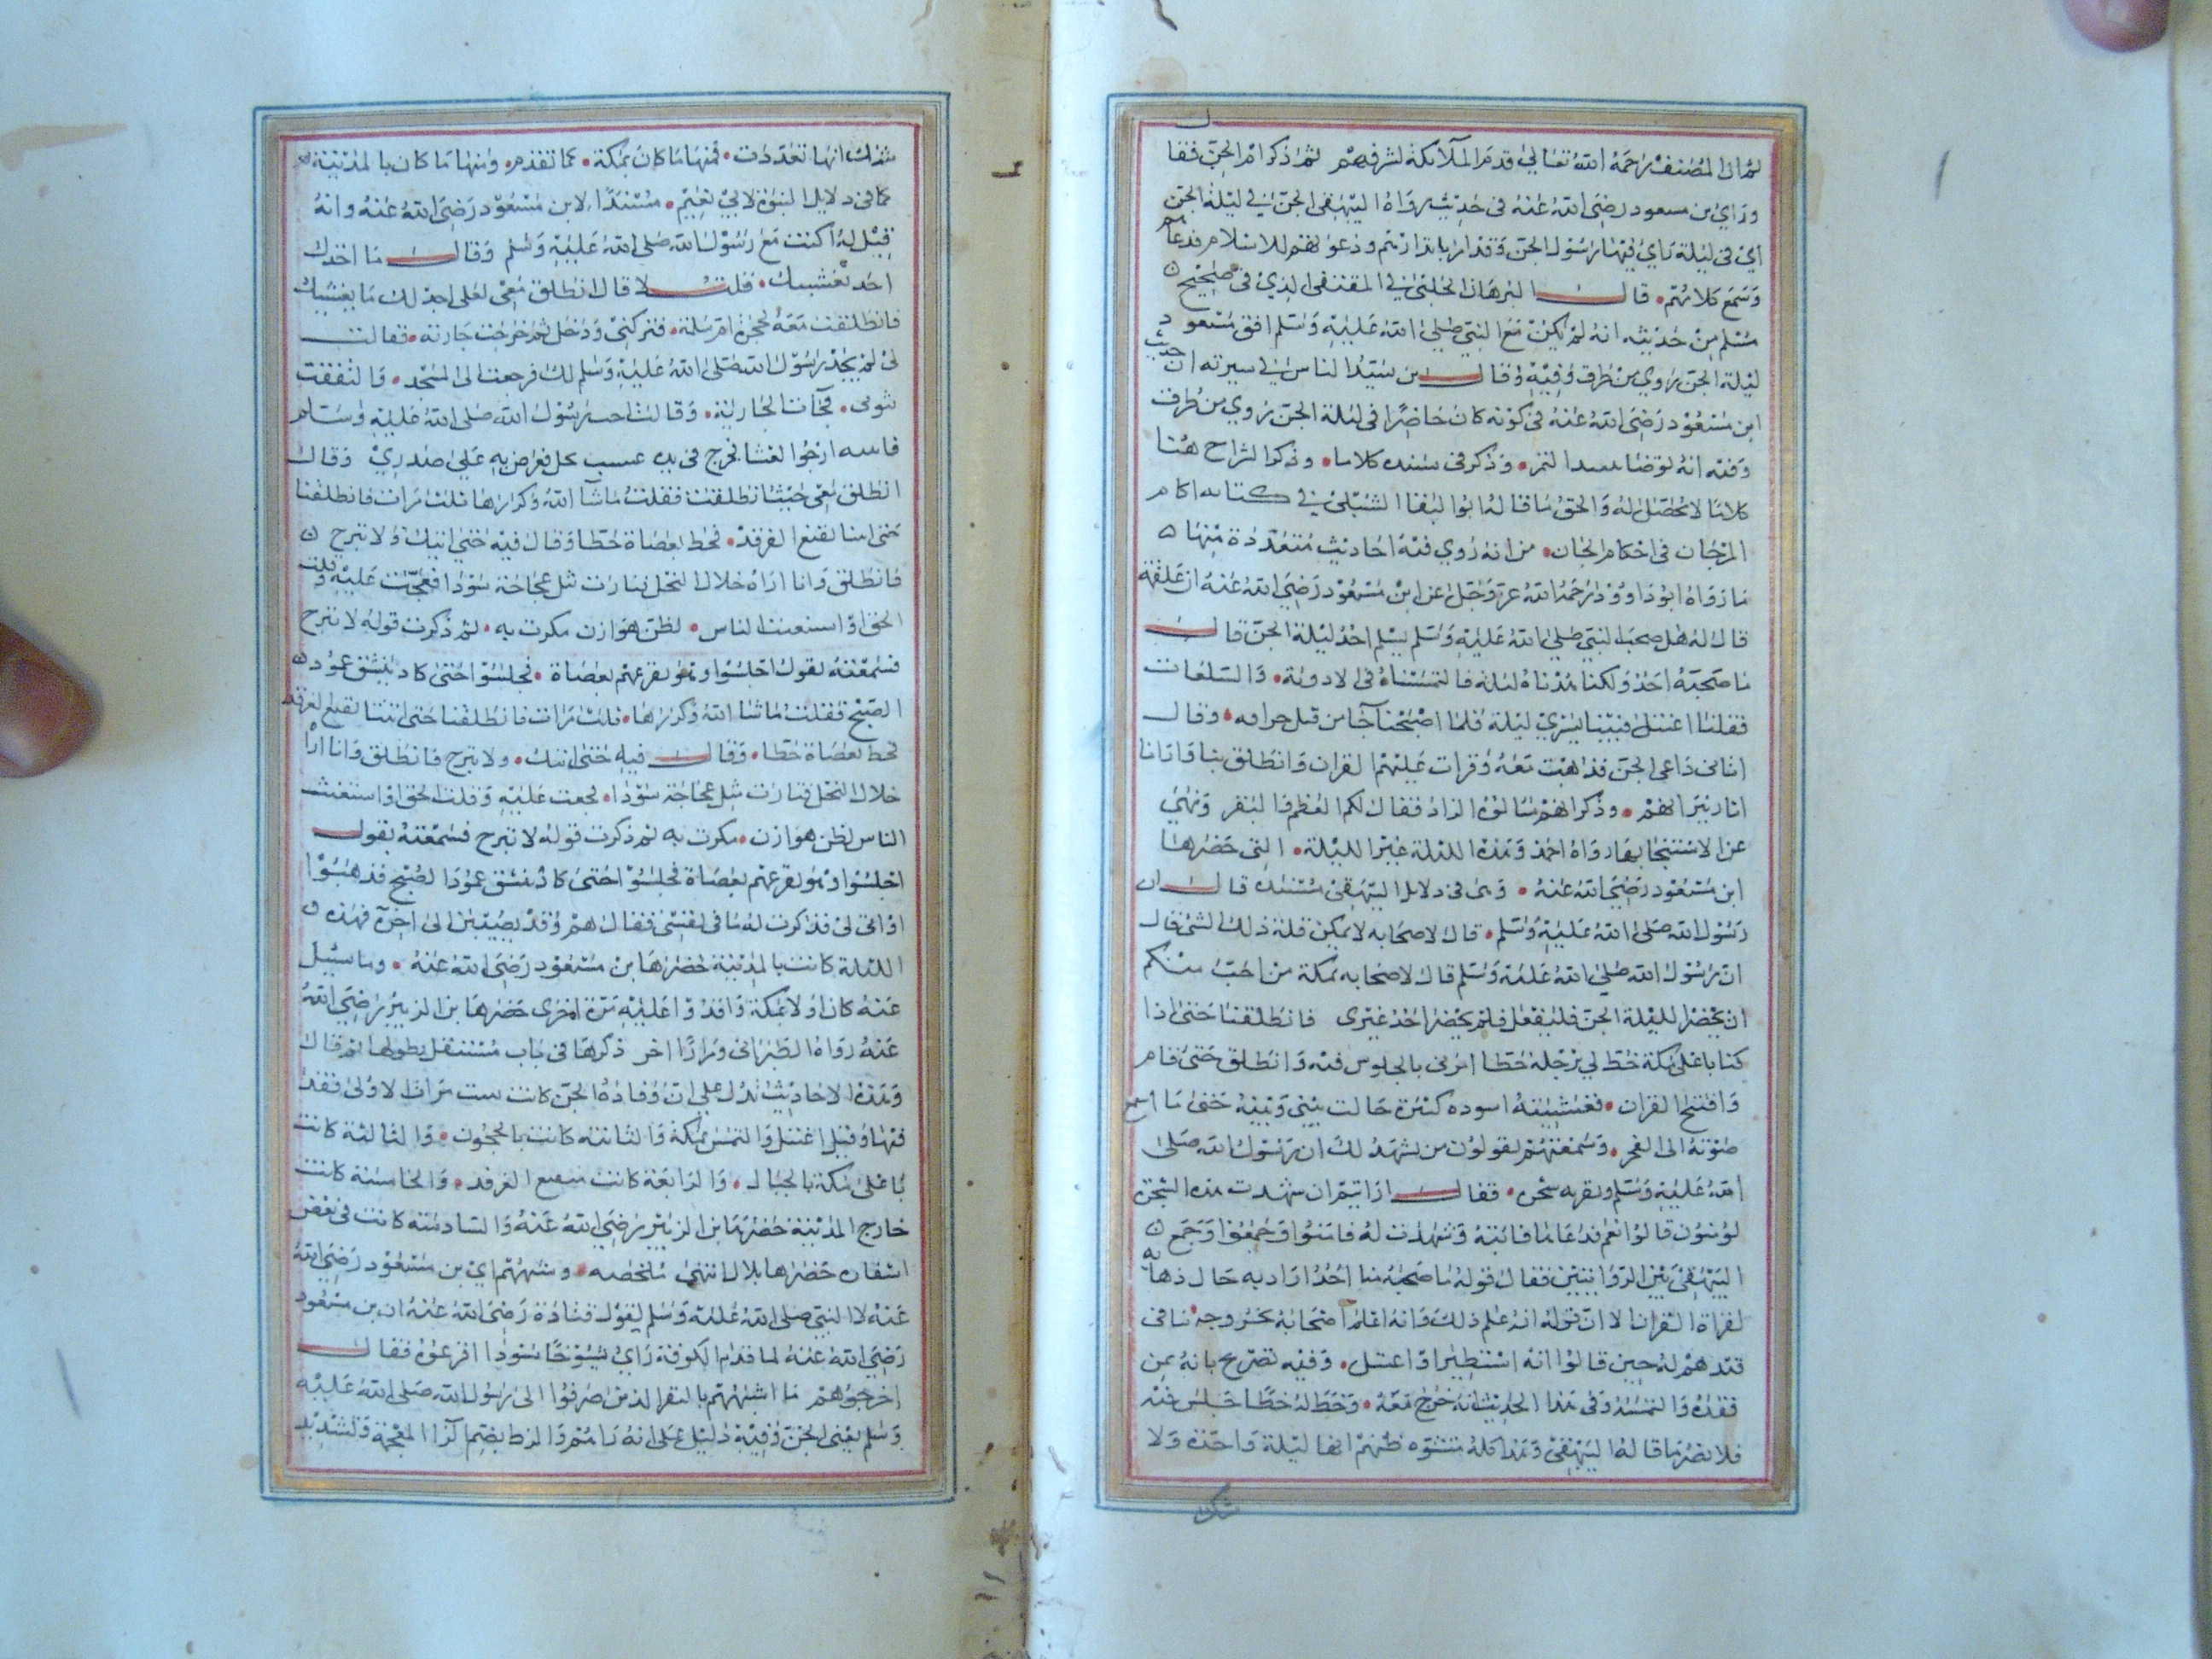 ثم ان المصنف رحمه الله تعالى قدم الملائكة لشرفهم ثم ذكر امر الجن فقال
وراي بن مسعود رضي الله عنه في حديث رواه البيهقي الجن اي في ليلة الجن
اي في ليلة راي فيها رسول الجن وقد امر بانذارهم ودعوتهم للاسلام فدعاهم
وسمع كلامهم قال البرهان الحلبي في المقتفى الذي في صحيح
مسلم من حديثه انه لم يكن مع النبي صلى الله عليه وسلم افق مسعود
ليلة الجن روي من طرق وفيه وقال بن سيد الناس في سيرته ان حديث
ابن مسعود رضي الله عنه في كونه كان حاضرا في ليلة الجن روي من طرق
وفيه انه توضا بنبيذ التمر وذكر في سنده كلاما وذكر الشراح هنا
كلاما لا محصل له والحق ما قاله ابوا البقا الشبلي في كتابه اكام
المرجان في احكام الجان من انه روي فيه احاديث متعددة منها
ما رواه ابو داوود رحمه الله عز وجل عن ابن مسعود رضي الله عنه ان علقمة
قال له هل صحب النبي صلى الله عليه وسلم ليلة الجن قال
ما صحبه احد ولكنا فقدناه ليلة فالتمسناه في الاودية والشعاب
فقلنا اغتيل فبتنا بشر ليلة فلما اصبحنا جا من قبل حرا وقال
اتاني داعي الجن فذهبت معه وقرات عليهم القران وانطلق بنا فارانا
اثار نيرانهم وذكر انهم سالوه الزاد فقال لكم العظم والبعر ونهى
عن الاستنجا بها رواه احمد وهذه الليلة غير الليلة التي حضرها
ابن مسعود رضي الله عنه وهي في دلايل البيهقي مسنده قال ان
رسول الله صلى الله عليه وسلم قال لاصحابه
ان رسول الله صلى الله عليه وسلم قال لاصحابه بمكة من احب منكم
ان يحضر الليلة الجن فليفعل فلم يحضر احد غيري فانطلقنا حتى اذا
كنا باعلى مكة خط لي برجله خطا امرني بالجلوس فيه وانطلق حتى قام
وافتتح القران فغشيته اسوده كثيرة حالت بيني وبينه حتى ما اسمع
صوته الى الفجر وسمعتهم يقولون من يشهد لك ان رسول الله صلى
الله عليه وسلم وبقربه شجرة فقال ارايتم ان شهدت هذه الشجرة
تؤمنون قالوا نعم فدعاها فاتته وشهدت له فامنوا وجمعوا وجمع
البيهقي بين الروايتين فقال قوله ما صحبه منا احد اراد به حال ذهابه
لقراة القران الا ان قوله انه علم ذلك وانه اعلم اصحابه بخروجه ينافي
فقدهم له حين قالوا انه استطير او اغتيل وفيه تصريح بانه ممن
فقده والتمسه وفي هذا الحديث انه خرج معه وخط له خطا جلس فيه
فلا يضر ما قاله البيهقي وهذا كله ظنهم انها ليلة واحدة ولا
شك
شك انها تعددت فمنها ما كان بمكة مما تقدم ومنها ما كان بالمدينة
كما في دلايل النبوة لابي نعيم مسندا لابن مسعود رضي الله عنه وانه
قيل له اكنت مع رسول الله صلى الله عليه وسلم وقال ما اخذك
احد يعشيك فقلت لا قال انطلق معي لعلي اجد لك ما يعشيك
فانطلقت معه لحجرة ام سلمة فتركني ودخل ثم خرجت جارية فقالت
لي لم يجد رسول الله صلى الله عليه وسلم لك فرجعت الى المسجد والتففت
ثوبي فجات الجارية وقالت اجب رسول الله صلى الله عليه وسلم
ارجوا العشا فخرج في يده عسيب نخل فعرض به على صدري وقال
انطلق معي حيث انطلقت فقلت ما شا الله وكررها ثلث مرات فانطلقنا
حتى اتينا بقيع الغرقد فخط بعصاة خطا وقال فيه حتى اتيك ولا تبرح
فانطلق وانا اراه خلال النخل فثارت مثل عجاجة سودا فعجت عليه وقلت
الحق او استغيث الناس لظن هوازن مكرت به ثم ذكرت قوله لا تبرح
فسمعته يقول اجلسوا وهو يقرعهم بعصاة فجلسوا حتى كاد ينشق عمود
الصبح فقلت ما شا الله وكررها ثلث مرات فانطلقنا حتى اتينا بقيع الغرقد
فخط بعصاة خطا وقال فيه حتى اتيك ولا تبرح فانطلق وانا ارا
خلال النخل فثارت مثل عجاجة سودا فعجت عليه وقلت الحق او استغيث
الناس لظن هوازن مكرت به ثم ذكرت قوله لا تبرح فسمعته يقول
اجلسوا وهو يقرعهم بعصاة فجلسوا حتى كاد ينشق عمود الصبح فذهبوا
واتى لي فذكرت له ما في نفسي فقال هم وفد نصيبين الى اخره فهذه
الليلة كانت بالمدينة حضرها بن مسعود رضي الله عنه وما سيل
عنه كان اولا بمكة وافدوا عليه مرة اخرى حضرها بن الزبير رضي الله
عنه رواه الطبراني ومرارا اخر ذكرها في باب مستقل بطولها ثم قال
وهذه الاحاديث تدل على ان وفادة الجن كانت ست مرات الاولى فقد
فيها وقيل اغتيل والتمس بمكة والثانية كانت بالحجون والثالثة كانت
باعلى مكة بالجبال والرابعة كانت ببقيع الغرقد والخامسة كانت
خارج المدينة حضرها بن الزبير رضي الله عنه والسادسة كانت في بعض
اسفاره حضرها بلال انتهى ملخصه وشبههم اي بن مسعود رضي الله
عنه لا النبي صلى الله عليه وسلم لقول قتادة رضي الله عنه ان بن مسعود
رضي الله عنه لما قدم الكوفة راي شيوخا سودا افزعوه فقال
اخرجوهم ما اشبههم بالنفر الذين صرفوا الى رسول الله صلى الله عليه
وسلم يعني الجن وفيه دليل على انه راهم والزط بضم الزا المعجمة وتشديد